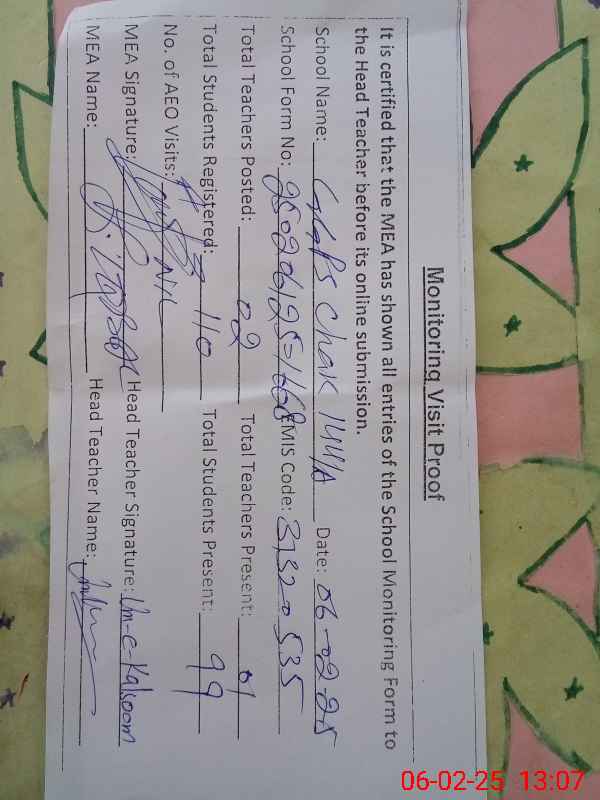 Monitoring Visit Proof
It is certified that the MEA has shown all entries of the School Monitoring Form to
the Head Teacher before its online submission.
School Name: GGPS Chak 144A Date: 06-02-25
School Form No: 25020612 EMIS Code: 31320535
Total Teachers Posted: 02 Total Teachers Present: 01
Total Students Registered: 110 Total Students Present: 99
No. of AEO Visits: Nil
MEA Signature: Head Teacher Signature: Um-e-Kalsoom
MEA Name: Head Teacher Name:
06-02-25 13:07